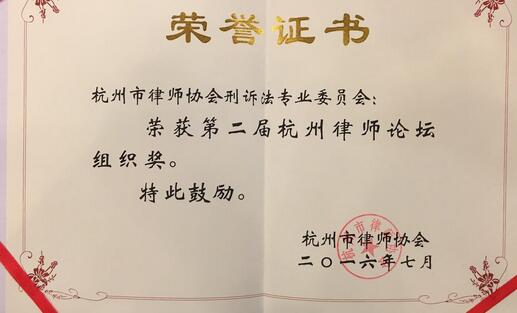 荣誉证书
杭州市律师协会刑诉法专业委员会：
荣获第二届杭州律师论坛
组织奖。
特此鼓励。
杭州市律师协会
二〇一六年七月